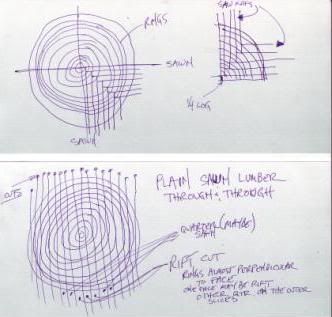 SAW KERFS
RINGS
SAWN
SAWN
1/4 LOG
CUTS
PLAIN SAWN LUMBER
THROUGH & THROUGH
QUARTER (MAYBE)
SAWN
RIFT CUT
RINGS ALMOST PERPENDICULAR
TO FACE
ONE FACE MAY BE RIFT
OTHER QTR. ON THE OUTER
SLICES